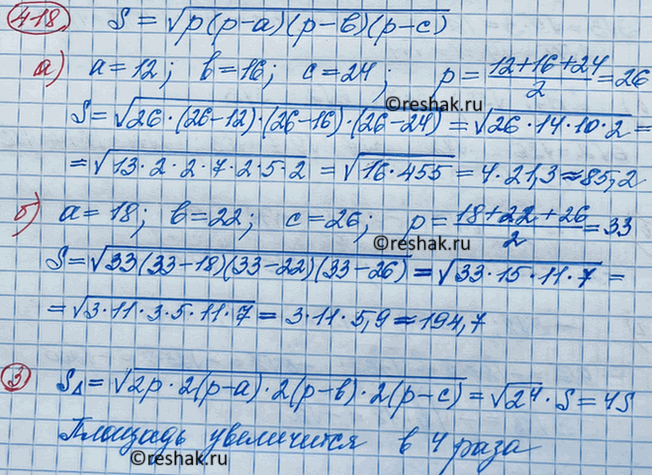 418 S = √p(p-a)(p-в)(p-c)
а) a=12; в=16; c=24; p = (12+16+24)/2 = 26
©reshak.ru
S = √26·(26-12)·(26-16)·(26-24) = √26·14·10·2 =
= √13·2·2·7·2·5·2 = √16·455 = 4·21,3 ≈ 85,2
б) a=18; в=22; c=26; p = (18+22+26)/2 = 33
©reshak.ru
S = √33(33-18)(33-22)(33-26) = √33·15·11·7 =
= √3·11·3·5·11·7 = 3·11·5,9 ≈ 194,7
3 S△ = √2p·2(p-a)·2(p-в)·2(p-c) = √2⁴·S = 4S
Площадь увеличится в 4 раза
©reshak.ru